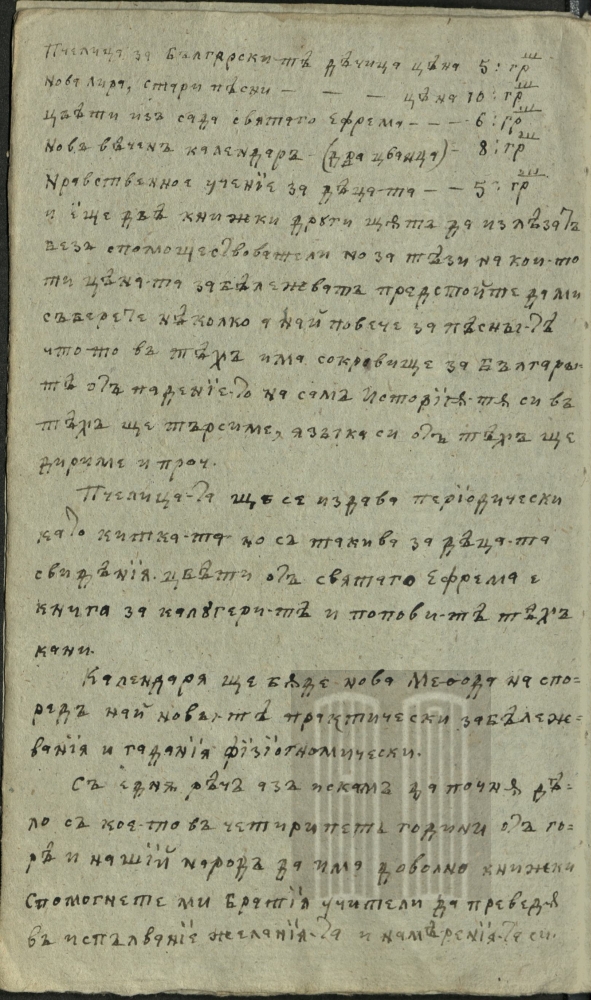 Пчелица за Български-тѣ дѣчица цѣна 5: гр
Нова лира, стари пѣсни — — — цѣна 10: гр
Цвѣти изъ сада святаго Ефрема — — — 6: гр
Новъ вѣченъ календаръ (два цванца) — 8: гр
Нравственное ученїе за дѣца-та — — 5: гр
и їще двѣ книжки други щѫтъ да излѣзатъ
безъ спомоществователи но за тѣзи на кои-то
ти цѣна-та забѣлежватъ предстойте да ми
съберете нѣколко а най повече за пѣсны-тѣ
что-то въ тѣхъ има сокровище за Българы-
тѣ отъ паденїе-то на самъ Исторїѭ-тѫ си въ
тѣхъ ще търсиме, языка си отъ тѣхъ ще
дириме и проч.
Пчелица-та ще се издава періодически
като китка-та но съ такива за дѣца-та
свидѣнїя. цвѣти отъ святаго Ефрема е
книга за калугери-тѣ и попови-тѣ тѣхъ
кани.
Календаря ще бѫде нова Метода на спо=
редъ най новы-тѣ практически забѣлеж=
ванїя и гаданїя фїзїогномически.
Съ една рѣчь азъ искамъ да почнѫ дѣ-
ло съ кое-то въ четири петь години отъ го=
рѣ и нашїй народъ да има доволно книжки
Спомогнете ми Братїя учители да преведѫ
въ испълванїе желанїя-та и намѣренїя-та си.